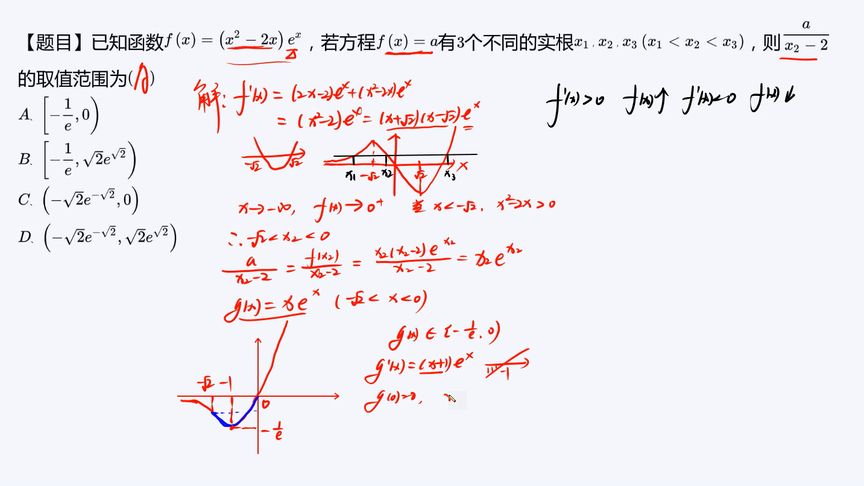 【题目】已知函数f(x)=(x²-2x)eˣ，若方程f(x)=a有3个不同的实根x₁，x₂，x₃(x₁<x₂<x₃)，则a/(x₂-2)
的取值范围为(A)
A. [-1/e,0)
B. [-1/e,√2e^√2)
C. (-√2e^-√2,0)
D. (-√2e^-√2,√2e^√2)
解: f'(x)=(2x-2)eˣ+(x²-2x)eˣ
=(x²-2)eˣ=(x+√2)(x-√2)eˣ
f'(x)>0 f(x)↑ f'(x)<0 f(x)↓
-√2 √2
x₁ -√2 x₂ √2 x₃ x
x→-∞, f(x)→0⁺ 当 x<-√2, x²-2x>0
∴-√2<x₂<0
a/(x₂-2)=f(x₂)/(x₂-2)=x₂(x₂-2)e^x₂/(x₂-2)=x₂e^x₂
g(x)=xeˣ (-√2<x<0)
g(x)∈[-1/e,0)
g'(x)=(x+1)eˣ
-1
g(0)=0,
-√2 -1 0
-1/e